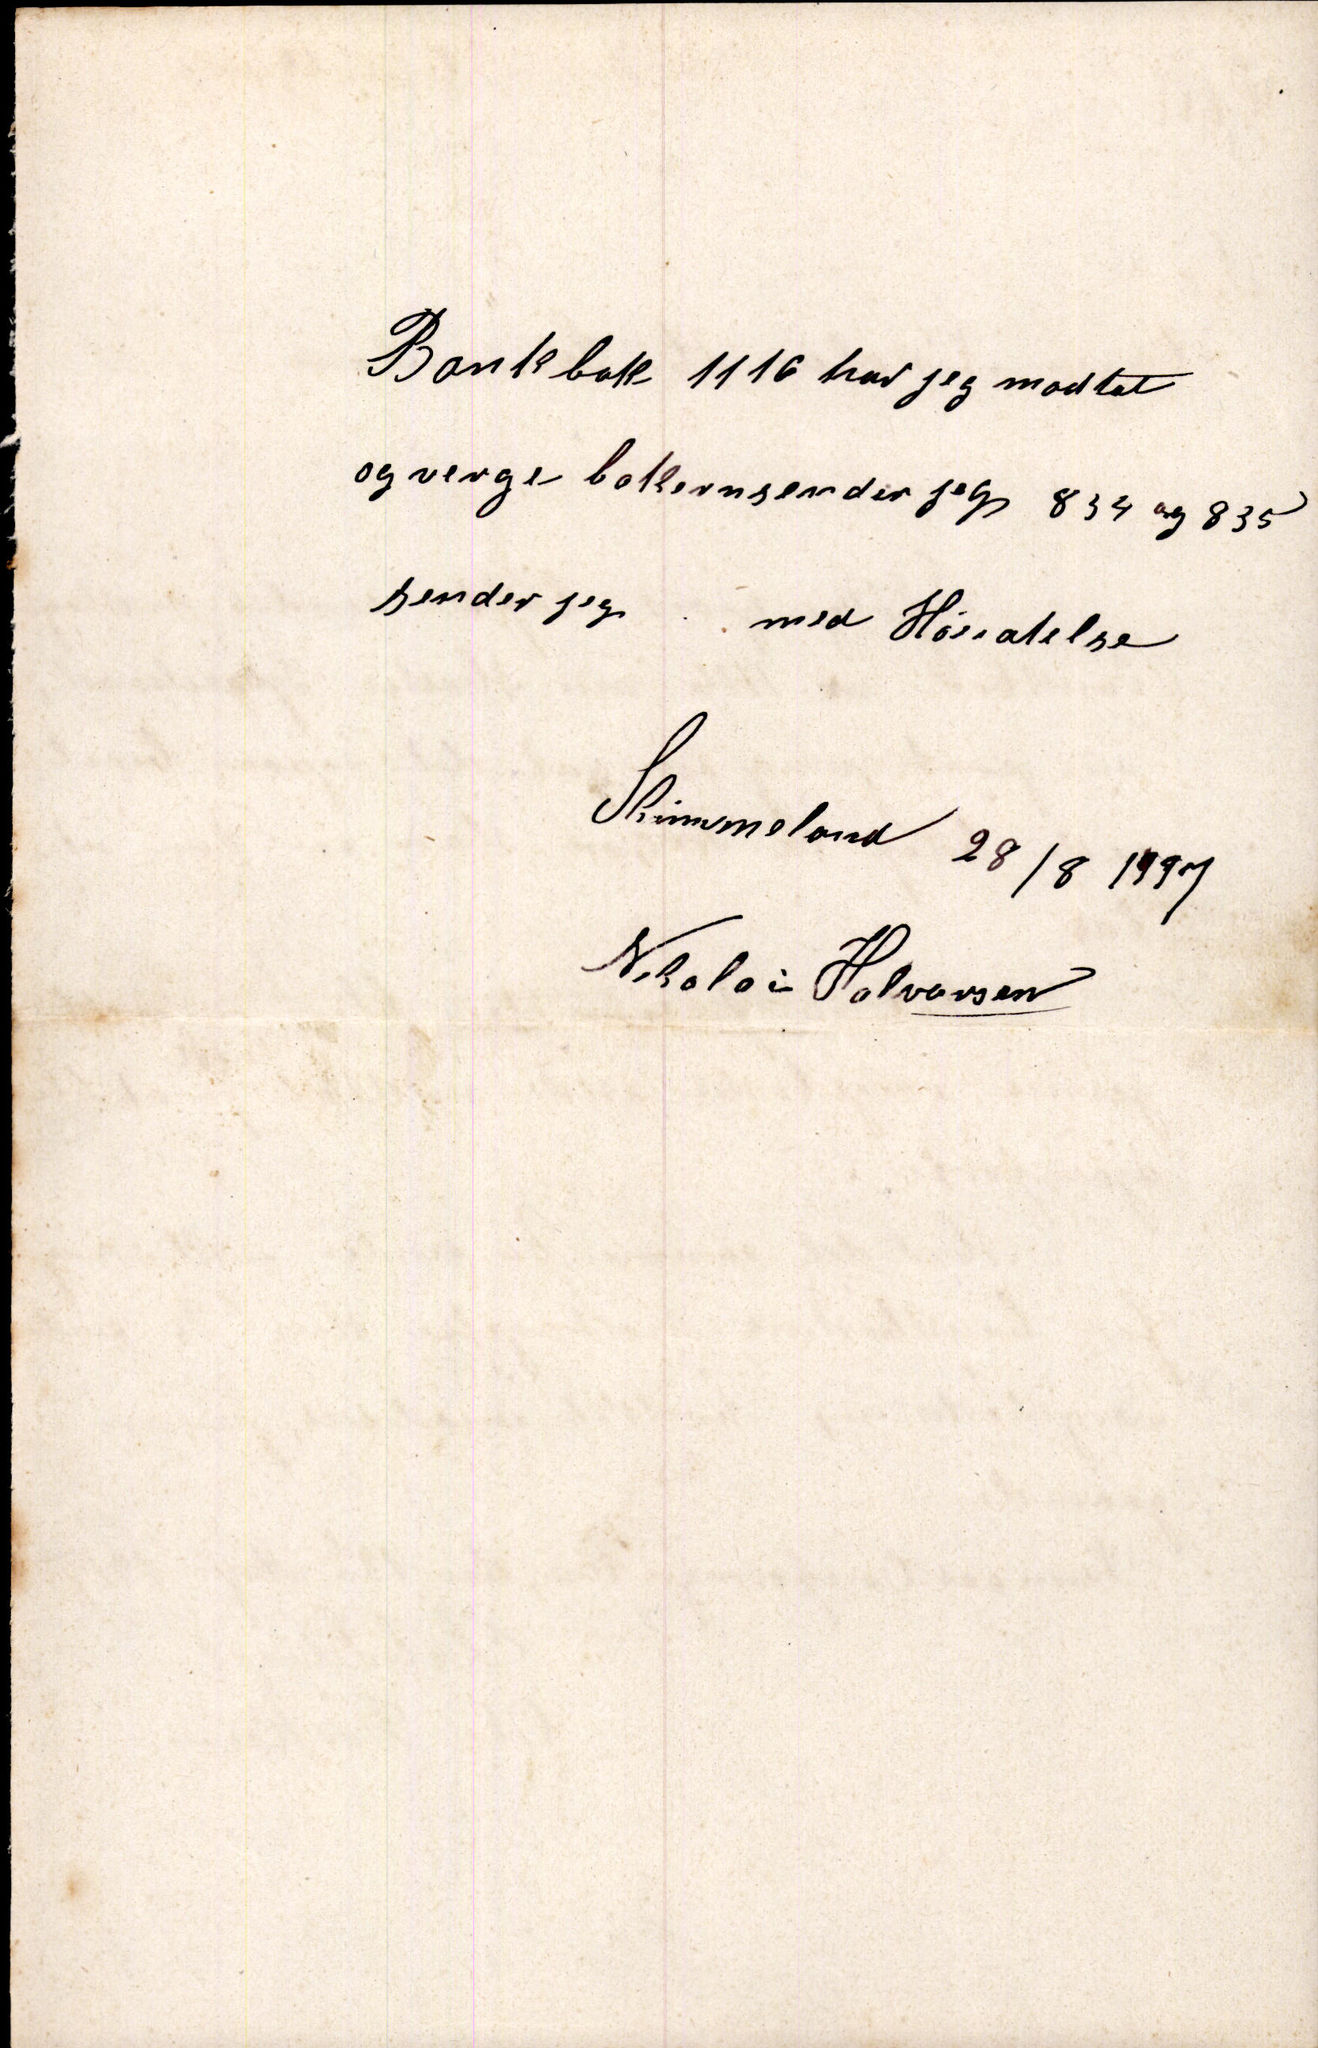 Bankbok 1116 har jeg modtat
og verge bokernsender jeg 834 og 835
sender jeg . med Høiatelse
Skimmeland 28/8 1997
Nikolai Halvorsen